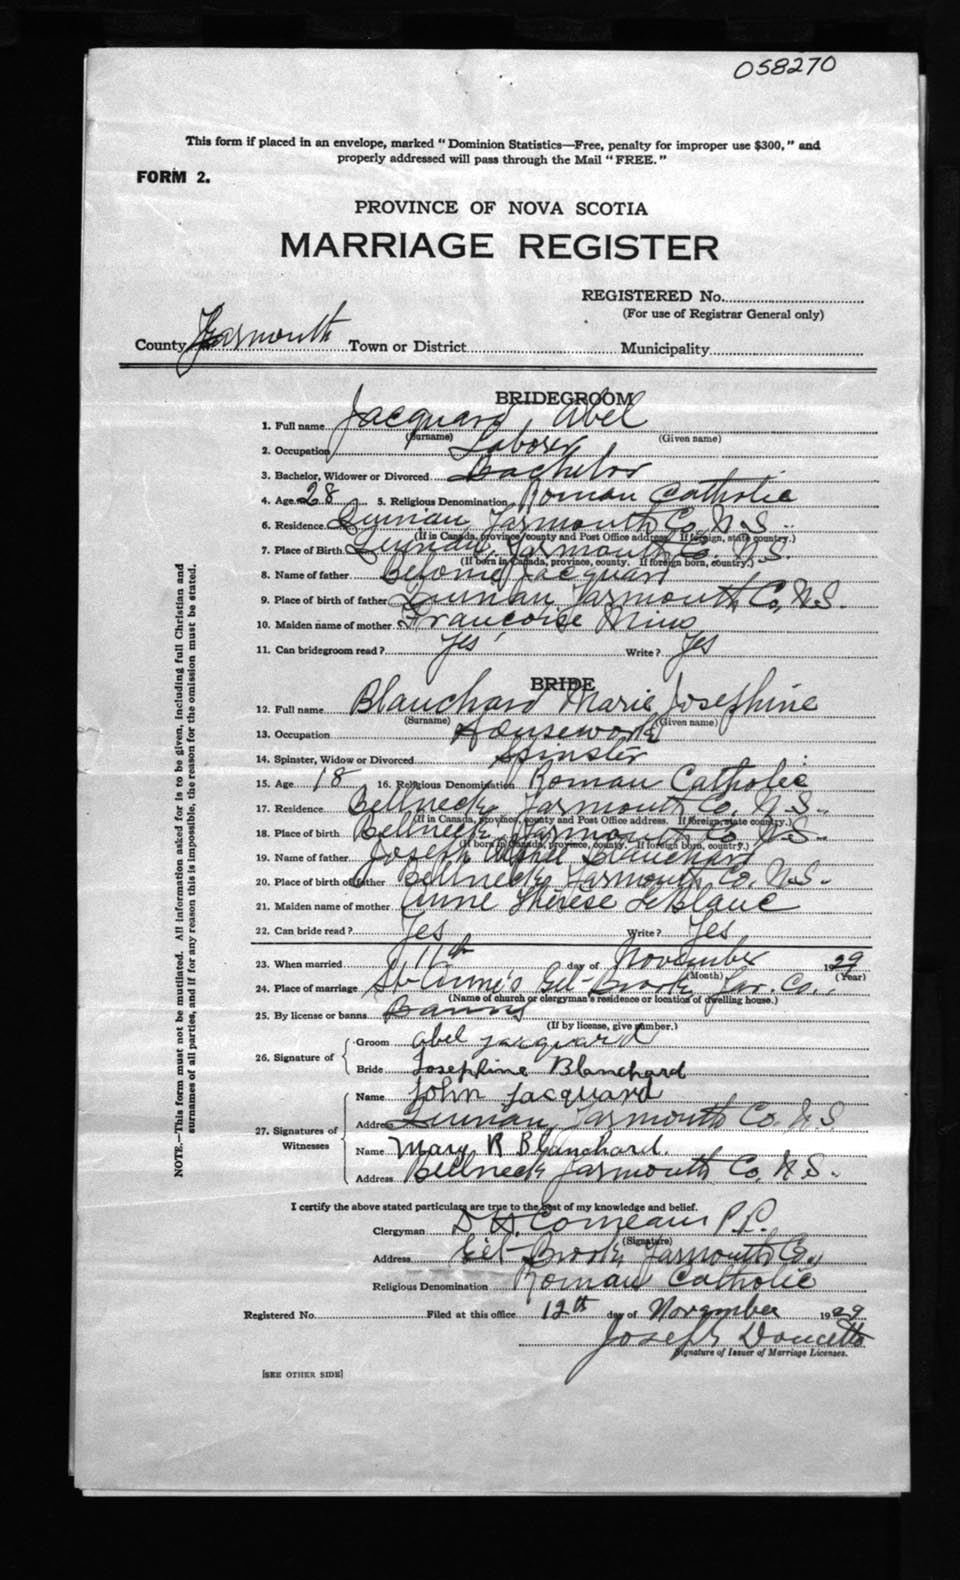 058270
This form if placed in an envelope, marked "Dominion Statistics—Free, penalty for improper use $300," and
properly addressed will pass through the Mail "FREE."
FORM 2.
PROVINCE OF NOVA SCOTIA
MARRIAGE REGISTER
REGISTERED No.
(For use of Registrar General only)
County Yarmouth Town or District Municipality
BRIDEGROOM
1. Full name Jacquard Abel
(Surname) (Given name)
2. Occupation Laborer
3. Bachelor, Widower or Divorced Bachelor
4. Age 28 5. Religious Denomination Roman Catholic
6. Residence Quinan Yarmouth Co. N.S.
(If in Canada, province, county and Post Office address. If foreign, state country.)
7. Place of Birth Quinan, Yarmouth Co. N.S.
(If born in Canada, province, county. If foreign born, country.)
8. Name of father Jacquard
9. Place of birth of father Quinan Yarmouth Co, N.S.
10. Maiden name of mother Françoise
11. Can bridegroom read? Yes Write? Yes
BRIDE
12. Full name Blanchard Marie Josephine
(Surname) (Given name)
13. Occupation Housework
14. Spinster, Widow or Divorced Spinster
15. Age 18 16. Religious Denomination Roman Catholic
17. Residence Bellneck Yarmouth Co. N.S.
(If in Canada, province, county and Post Office address. If foreign, state country.)
18. Place of birth Bellneck Yarmouth Co N.S.
(If born in Canada, province, county. If foreign born, country.)
19. Name of father Joseph Blanchard
20. Place of birth of father Bellneck Yarmouth Co. N.S.
21. Maiden name of mother Anne Thérèse LeBlanc
22. Can bride read? Yes Write? Yes
23. When married 11th day of November 1929
(Month) (Year)
24. Place of marriage St Anne's Eel-Brook Yar. Co.
(Name of church or clergyman's residence or location of dwelling house.)
25. By license or banns Banns
(If by license, give number.)
26. Signature of
Groom Abel Jacquard
Bride Josephine Blanchard
27. Signatures of Witnesses
Name John Jacquard
Address Quinan, Yarmouth Co. N.S
Name Mary R Blanchard.
Address Bellneck Yarmouth Co, N.S.
I certify the above stated particulars are true to the best of my knowledge and belief.
Clergyman D H. Comeau P.P.
(Signature)
Address Eel-Brook, Yarmouth Co,
Religious Denomination Roman Catholic
Registered No. Filed at this office 12th day of November 1929
Joseph Doucette
Signature of Issuer of Marriage Licenses.
[SEE OTHER SIDE]
NOTE.—This form must not be mutilated. All information asked for is to be given, including full Christian and
surnames of all parties, and if for any reason this is impossible, the reason for the omission must be stated.